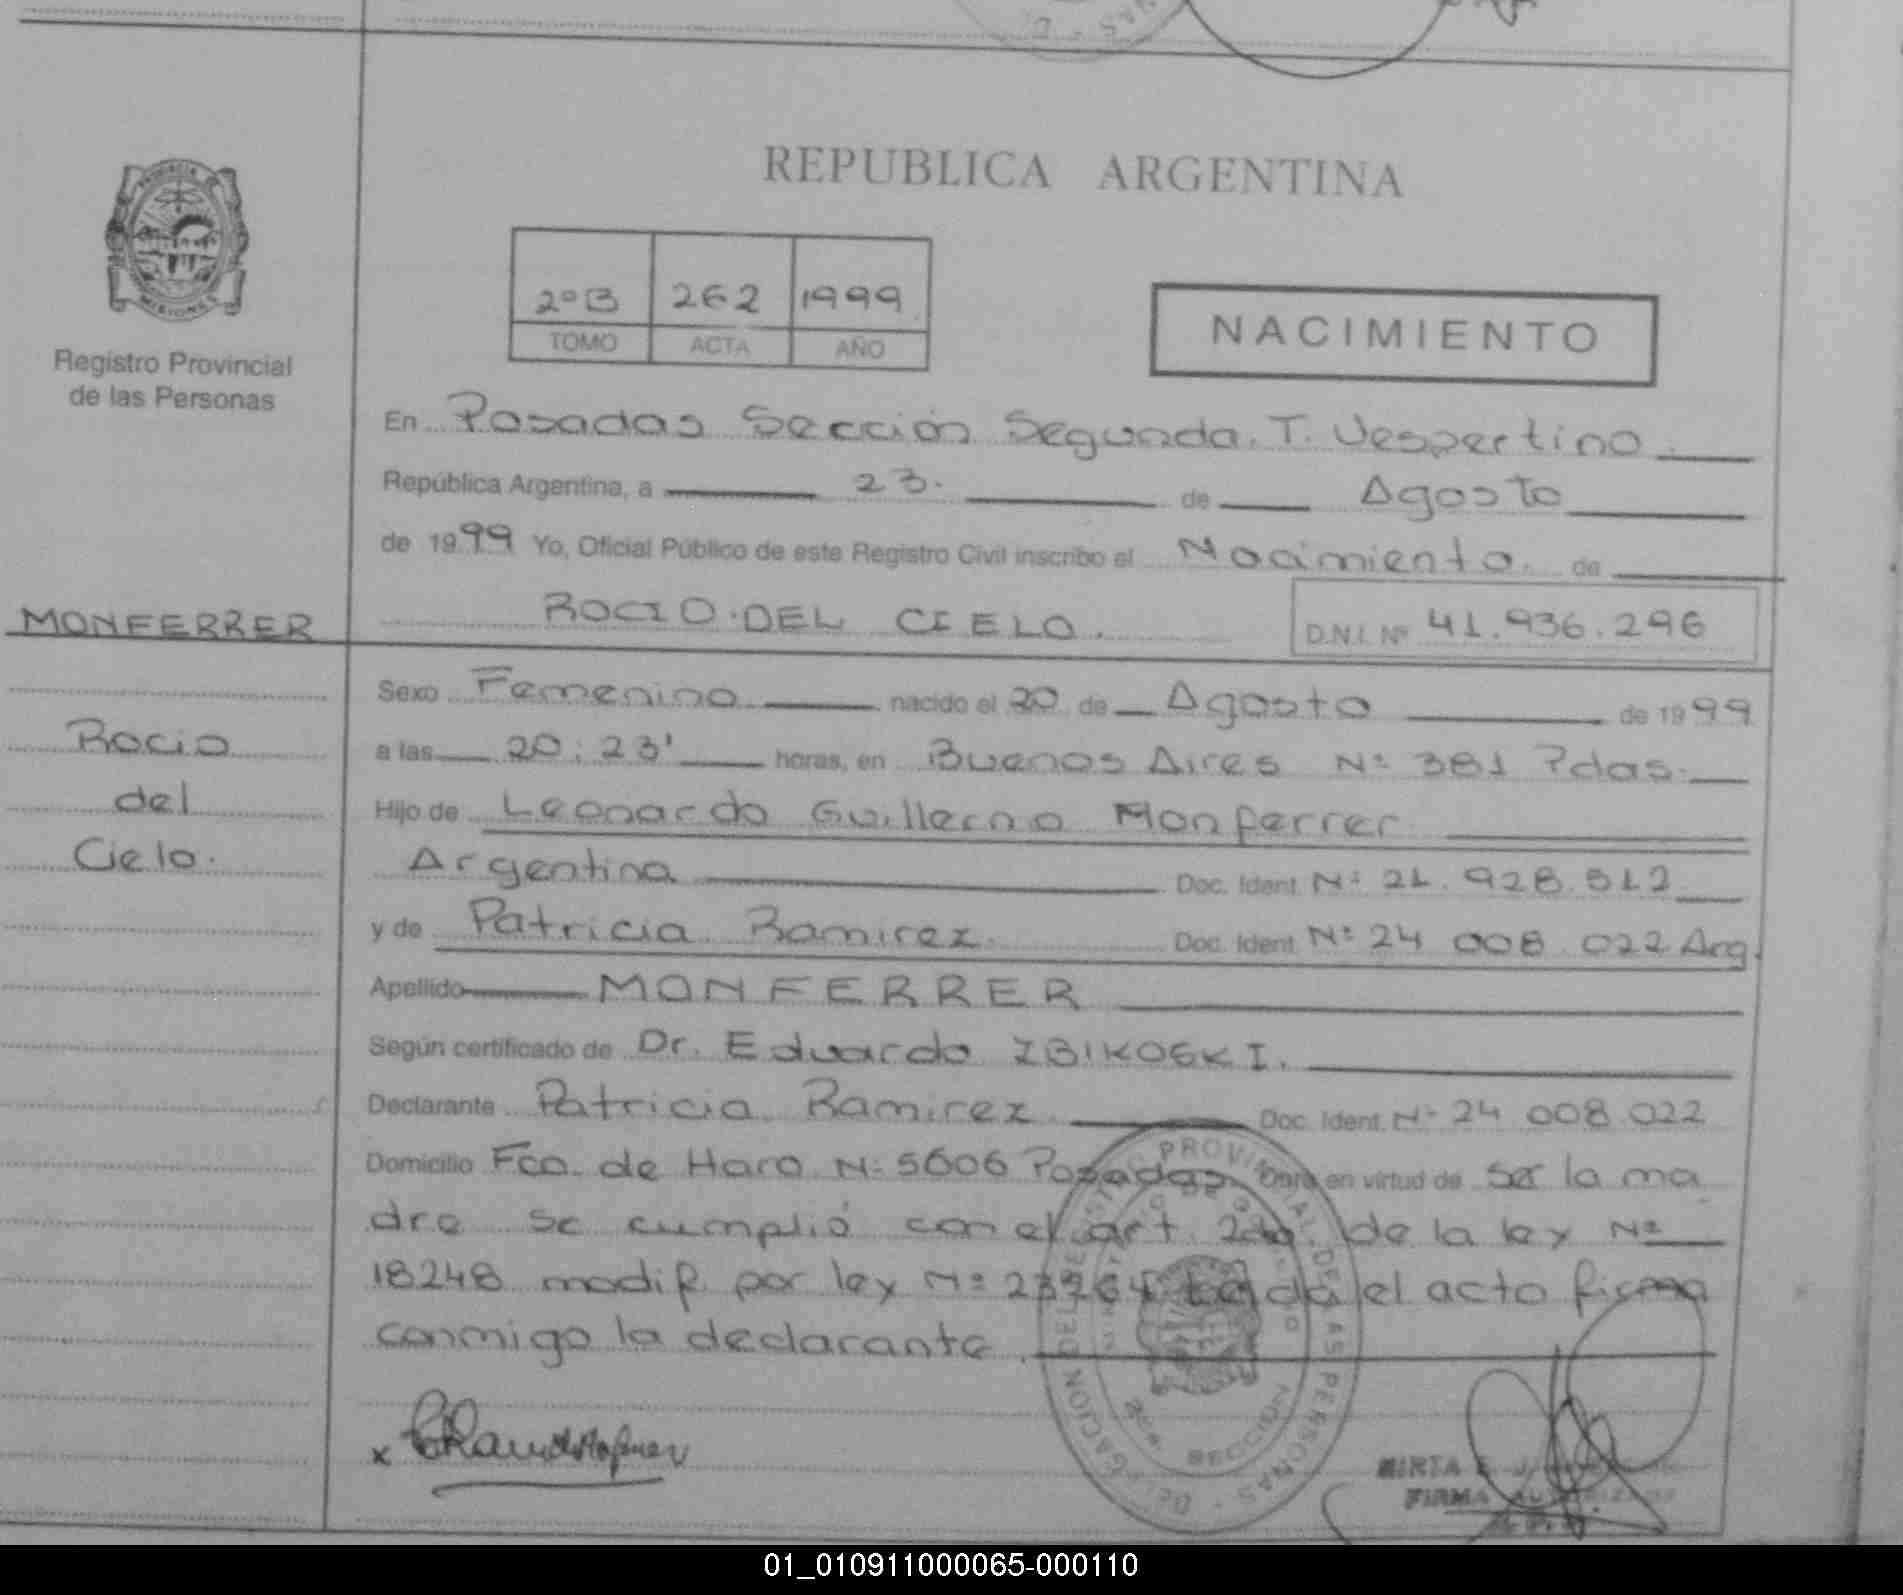 REPUBLICA ARGENTINA
Registro Provincial
de las Personas
2º B 262 1999
TOMO ACTA AÑO
NACIMIENTO
En Posadas Sección Segunda. T. Vespertino.
República Argentina, a 23. de Agosto
de 1999 Yo, Oficial Público de este Registro Civil inscribo el Nacimiento. de
MONFERRER
ROCIO DEL CIELO. D.N.I. Nº 41.936.296
Rocio
del
Cielo.
Sexo Femenino nacido el 20 de Agosto de 1999
a las 20:23' horas, en Buenos Aires Nº 381 Pdas.
Hijo de Leonardo Guillermo Monferrer
Argentina Doc. Ident. Nº 21.928.512
y de Patricia Ramirez Doc. Ident. Nº 24 008.022 Arg.
Apellido MONFERRER
Según certificado de Dr. Eduardo ZBIKOSKI.
Declarante Patricia Ramirez Doc. Ident. Nº 24 008.022
Domicilio Fco. de Haro Nº 5606 Posadas Obra en virtud de ser la ma
dre se cumplió con el art. de la ley Nº
18248 modif. por ley Nº 23264 el acto firma
conmigo la declarante.
DELEGACION DEL REGISTRO PROVINCIAL DE LAS PERSONAS
SECCION
x
MIRTA
FIRMA AUTORIZADA
01_010911000065-000110